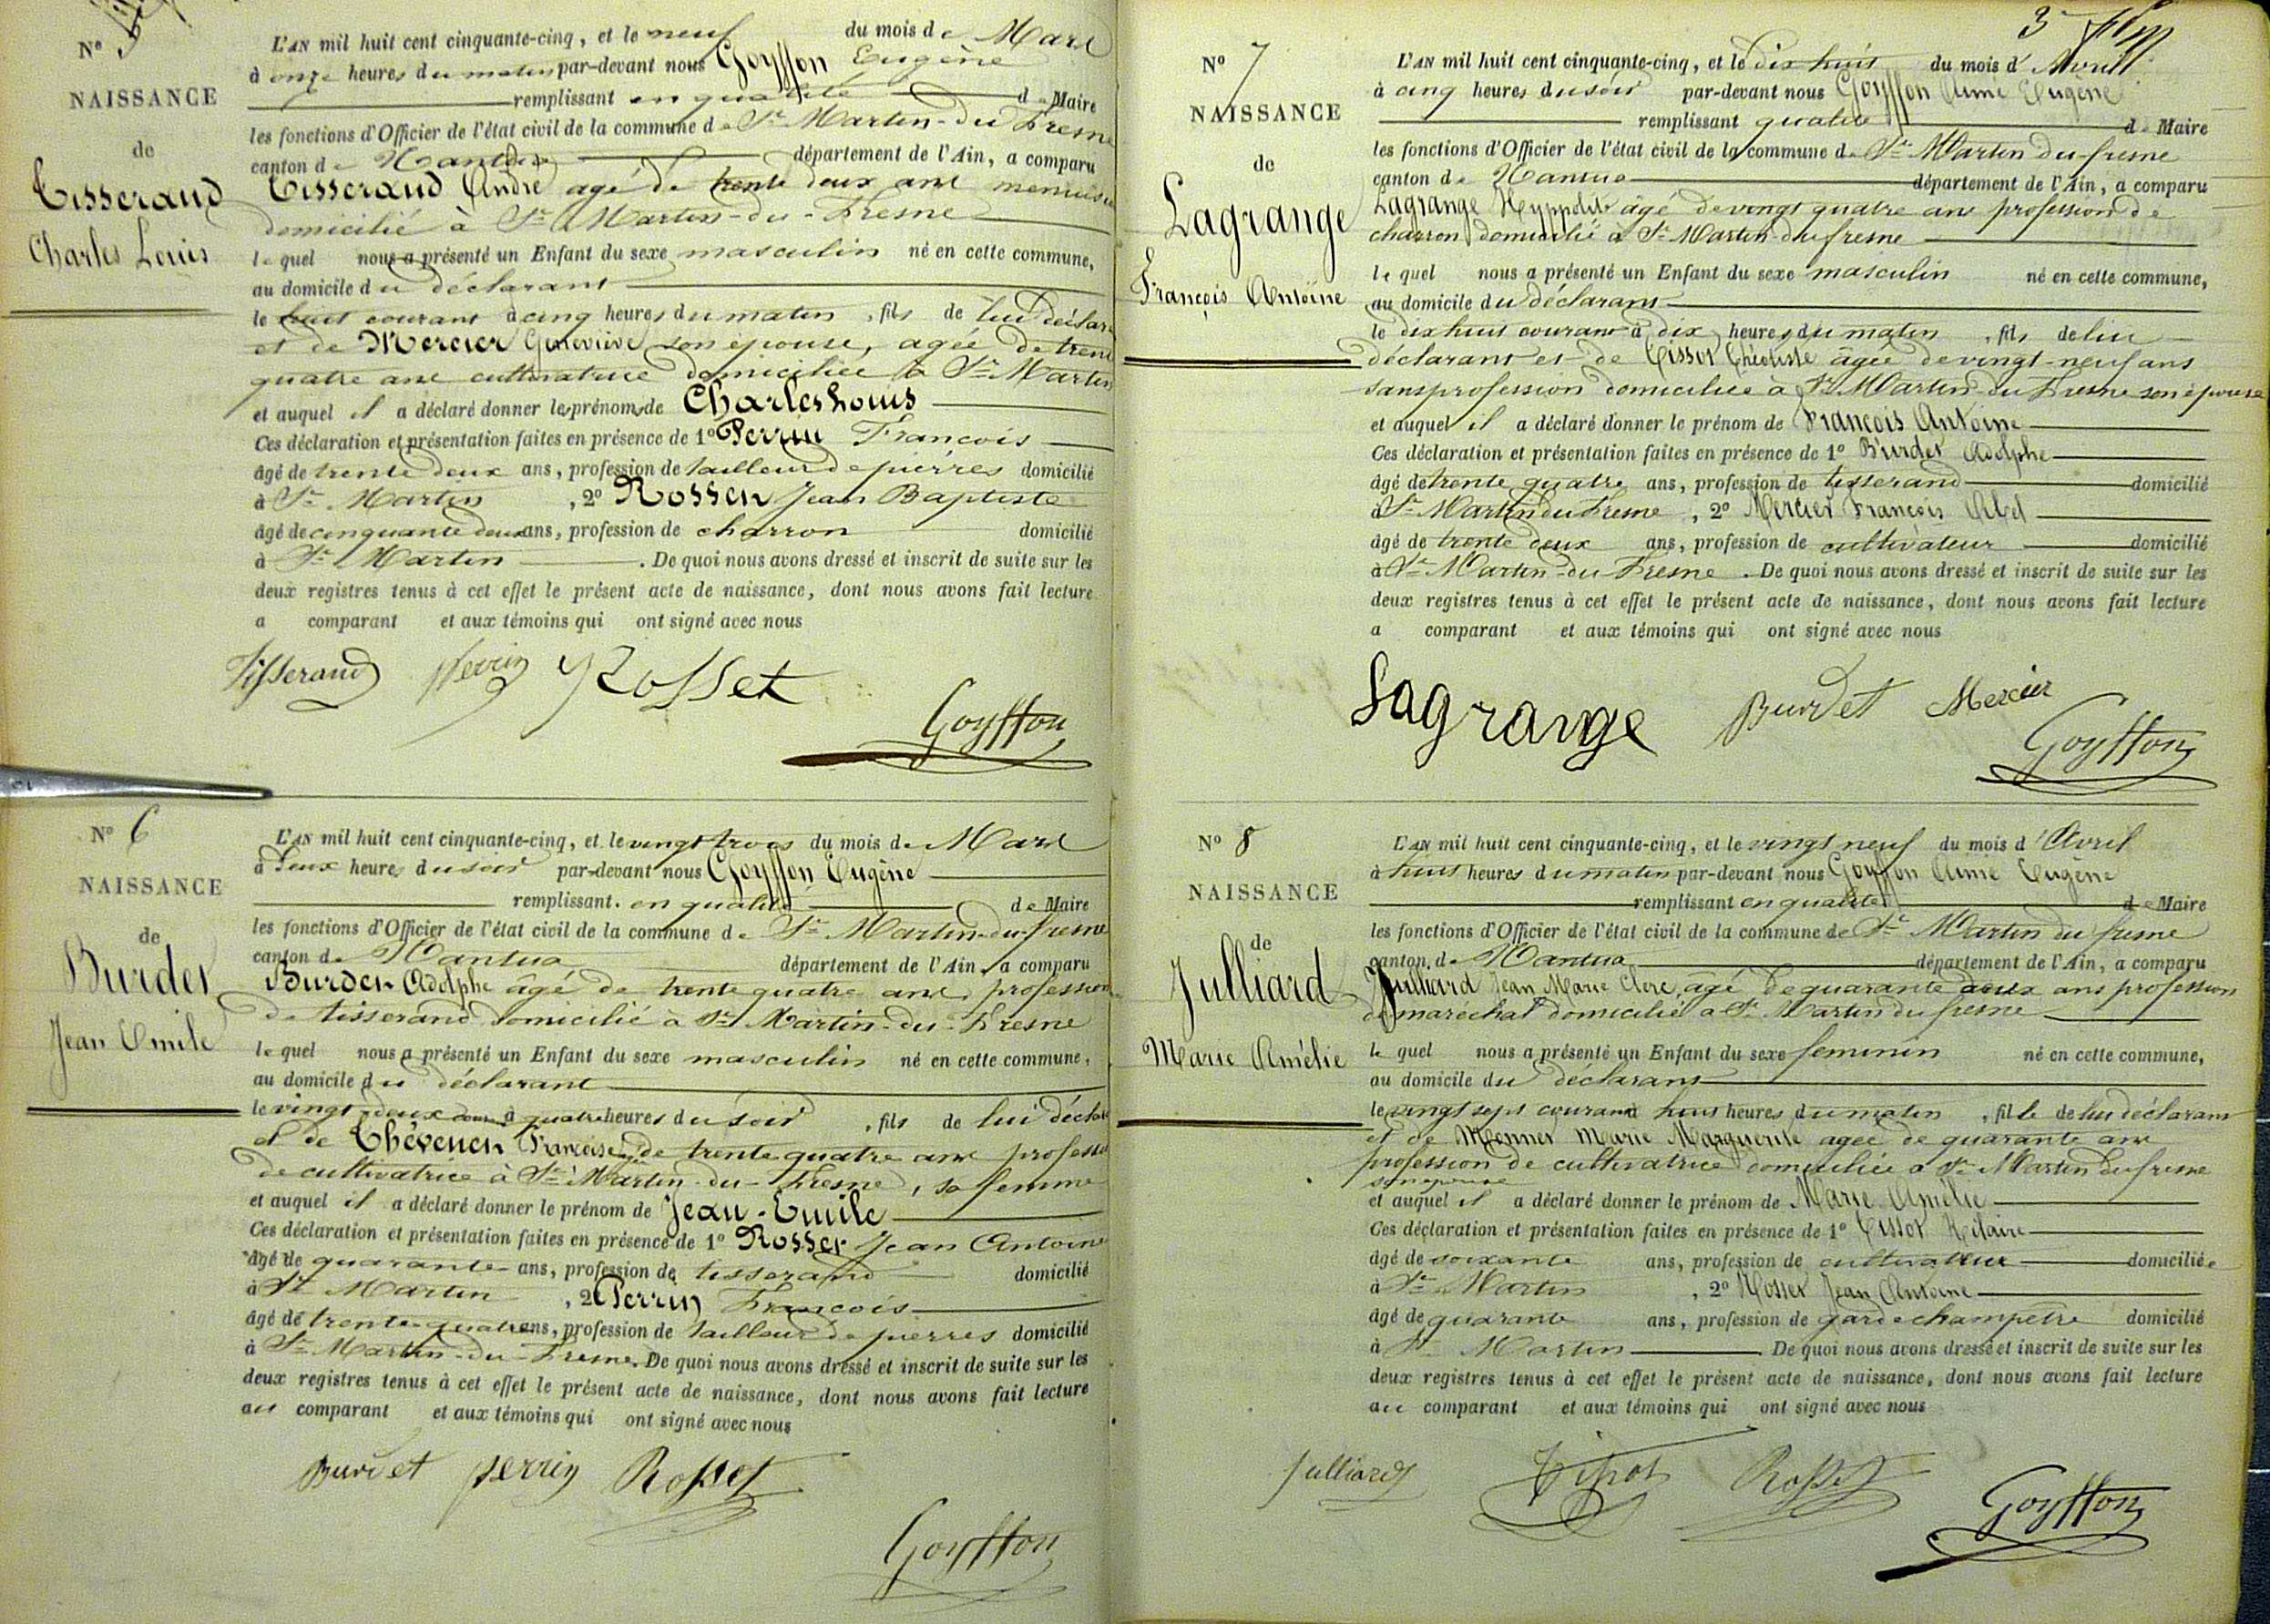 N° 5
NAISSANCE
de
Tisserand
Charles Louis
L'AN mil huit cent cinquante-cinq, et le neuf du mois de Mars
à onze heures du matin par-devant nous Goyffon Eugène
remplissant en qualité de Maire
les fonctions d'Officier de l'état civil de la commune de St Martin-du Fresne
canton de Nantua département de l'Ain, a comparu
Tisserand André agé de trente deux ans menuisie
domicilié à St Martin-du-Fresne
lequel nous a présenté un Enfant du sexe masculin né en cette commune,
au domicile du déclarant
le huit courant à cinq heures du matin, fils de lui déclar
et de Mercier Geneviève son épouse, agée de trent
quatre ans cultivatrice domiciliée à St Martin
et auquel il a déclaré donner les prénoms de Charles Louis
Ces déclaration et présentation faites en présence de 1° Perrin François
âgé de trente deux ans, profession de tailleur de pierres domicilié
à St Martin, 2° Rosset Jean Baptiste
âgé de cinquante deux ans, profession de charron domicilié
à St Martin. De quoi nous avons dressé et inscrit de suite sur les
deux registres tenus à cet effet le présent acte de naissance, dont nous avons fait lecture
a comparant et aux témoins qui ont signé avec nous
Tisserand Perrin Rosset
Goyffon
N° 6
NAISSANCE
de
Burdet
Jean Emile
L'AN mil huit cent cinquante-cinq, et le vingt trois du mois de Mars
à deux heures du soir par-devant nous Goyffon Eugène
remplissant en qualité de Maire
les fonctions d'Officier de l'état civil de la commune de St Martin-du-fresne
canton de Nantua département de l'Ain, a comparu
Burdet Adolphe âgé de trente quatre ans, profession
de tisserand domicilié à St Martin-du-Fresne
lequel nous a présenté un Enfant du sexe masculin né en cette commune,
au domicile du déclarant
le vingt-deux à quatre heures du soir, fils de lui décla
et de Thévenet Françoise de trente quatre ans profess
de cultivatrice à St Martin-du-Fresne, sa femme
et auquel il a déclaré donner le prénom de Jean-Emile
Ces déclaration et présentation faites en présence de 1° Rosset Jean Antoine
âgé de quarante ans, profession de tisserand domicilié
à St Martin, 2° Perrin François
âgé de trente-quatre ans, profession de tailleur de pierres domicilié
à St Martin-du-Fresne. De quoi nous avons dressé et inscrit de suite sur les
deux registres tenus à cet effet le présent acte de naissance, dont nous avons fait lecture
au comparant et aux témoins qui ont signé avec nous
Burdet perrin Rosset
Goyffon
3
N° 7
NAISSANCE
de
Lagrange
François Antoine
L'AN mil huit cent cinquante-cinq, et le dix huit du mois d'Avril
à cinq heures du soir par-devant nous Goyffon Aimé Eugène
remplissant qualité de Maire
les fonctions d'Officier de l'état civil de la commune de St Martin du fresne
canton de Nantua département de l'Ain, a comparu
Lagrange Hyppolite âgé de vingt quatre ans profession de
charron domicilié à St Martin-du fresne
lequel nous a présenté un Enfant du sexe masculin né en cette commune,
au domicile du déclarant
le dix huit courant à dix heures du matin, fils de lui
déclarant et de Tissot Théotiste âgée de vingt-neuf ans
sans profession domiciliée à St Martin-du Fresne son épouse
et auquel il a déclaré donner le prénom de François Antoine
Ces déclaration et présentation faites en présence de 1° Burdet Adolphe
âgé de trente quatre ans, profession de tisserand domicilié
à St Martin du Fresne, 2° Mercier François Abel
âgé de trente deux ans, profession de cultivateur domicilié
à St Martin-du Fresne. De quoi nous avons dressé et inscrit de suite sur les
deux registres tenus à cet effet le présent acte de naissance, dont nous avons fait lecture
a comparant et aux témoins qui ont signé avec nous
Lagrange Burdet Mercier
Goyffon
N° 8
NAISSANCE
de
Julliard
Marie Amélie
L'AN mil huit cent cinquante-cinq, et le vingt neuf du mois d'Avril
à huit heures du matin par-devant nous Goyffon Aimé Eugène
remplissant en qualité de Maire
les fonctions d'Officier de l'état civil de la commune de St Martin du fresne
canton de Nantua département de l'Ain, a comparu
Julliard Jean Marie Clerc, agé de quarante deux ans profession
de maréchal domicilié à St Martin du fresne
lequel nous a présenté un Enfant du sexe feminin né en cette commune,
au domicile du déclarant
le vingt sept courant à huit heures du matin, fille de lui déclarant
et de Monnet Marie Marguerite agée de quarante ans
profession de cultivatrice domiciliée à St Martin du fresne
son épouse
et auquel il a déclaré donner le prénom de Marie Amélie
Ces déclaration et présentation faites en présence de 1° Tissot Hilaire
âgé de soixante ans, profession de cultivateur domicilié
à St Martin, 2° Rosset Jean Antoine
âgé de quarante ans, profession de garde champêtre domicilié
à St Martin. De quoi nous avons dressé et inscrit de suite sur les
deux registres tenus à cet effet le présent acte de naissance, dont nous avons fait lecture
au comparant et aux témoins qui ont signé avec nous
Julliard Tissot Rosset
Goyffon